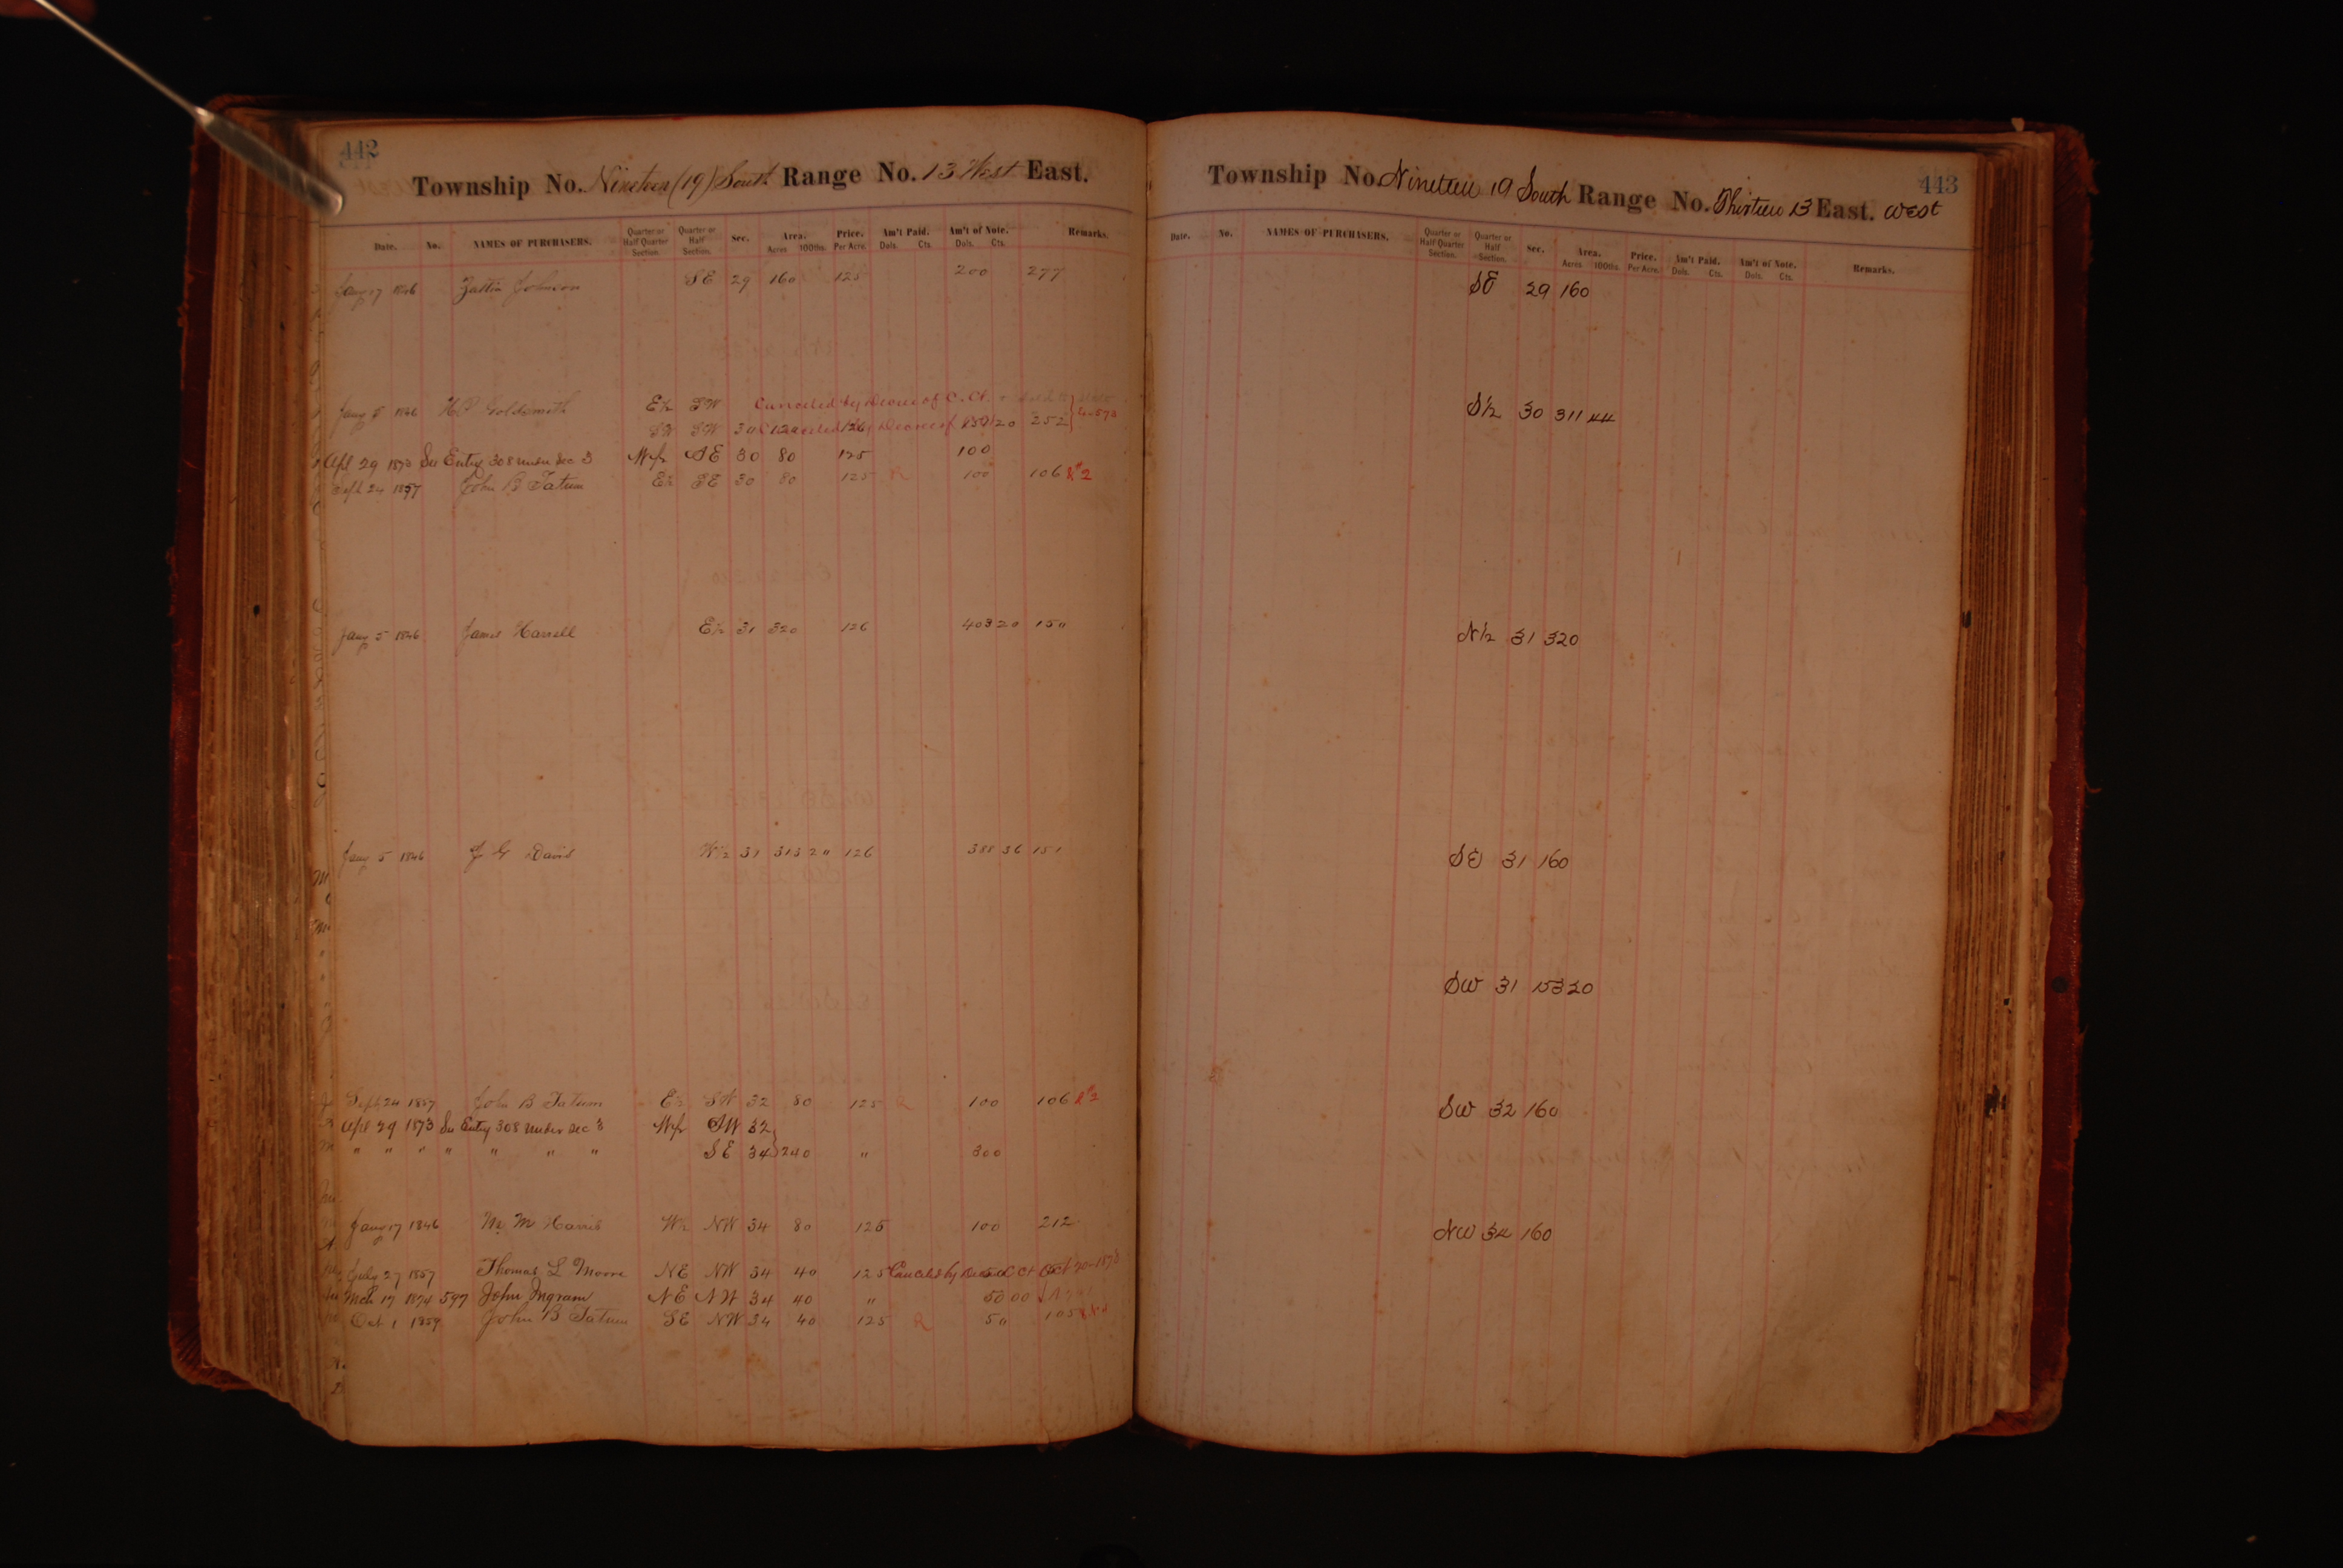 442
Township No. Nineteen (19) South Range No. 13 West East.
Date. No. NAMES OF PURCHASERS. Quarter or Half Quarter Section. Quarter or Half Section. Sec. Area. Acres 100ths. Price. Per Acre. Am't Paid. Dols. Cts. Am't of Note. Dols. Cts. Remarks.
Jany 17 1846 Johnson SE 29 160 125 200 277
Jany 5 1846 Goldsmith E½ SW Canceled by Decree of C. Ct.
SW SW 30 120 126 20 252
Apl 29 1873 See Entry 308 under Sec 3 W½ SE 30 80 125 100
Sept 24 1857 John B Tatum E½ SE 30 80 125 R 100 106 R#2
Jany 5 1846 James Harrell E½ 31 320 126 403 20 150
Jany 5 1846 J G David W½ 31 313 20 126 388 36 151
Sept 24 1857 John B Tatum E½ SW 32 80 125 R 100 106 R#2
Apl 29 1873 See Entry 308 under Sec 3 W½ SW 32
" " " " " " " SE 34 240 " 300
Jany 17 1846 Harris W½ NW 34 80 125 100 212
July 27 1857 Thomas L Moore NE NW 34 40 125 Canceled by Decree C Ct Oct 20 1873
Mch 17 1874 597 John Ingram NE NW 34 40 " 50 00
Oct 1 1859 John B Tatum SE NW 34 40 125 R 50 105
443
Township No. Nineteen 19 South Range No. Thirteen 13 East. West
Date. No. NAMES OF PURCHASERS. Quarter or Half Quarter Section. Quarter or Half Section. Sec. Area. Acres 100ths. Price. Per Acre. Am't Paid. Dols. Cts. Am't of Note. Dols. Cts. Remarks.
SE 29 160
S½ 30 311 44
N½ 31 320
SE 31 160
SW 31 153 20
SW 32 160
NW 34 160